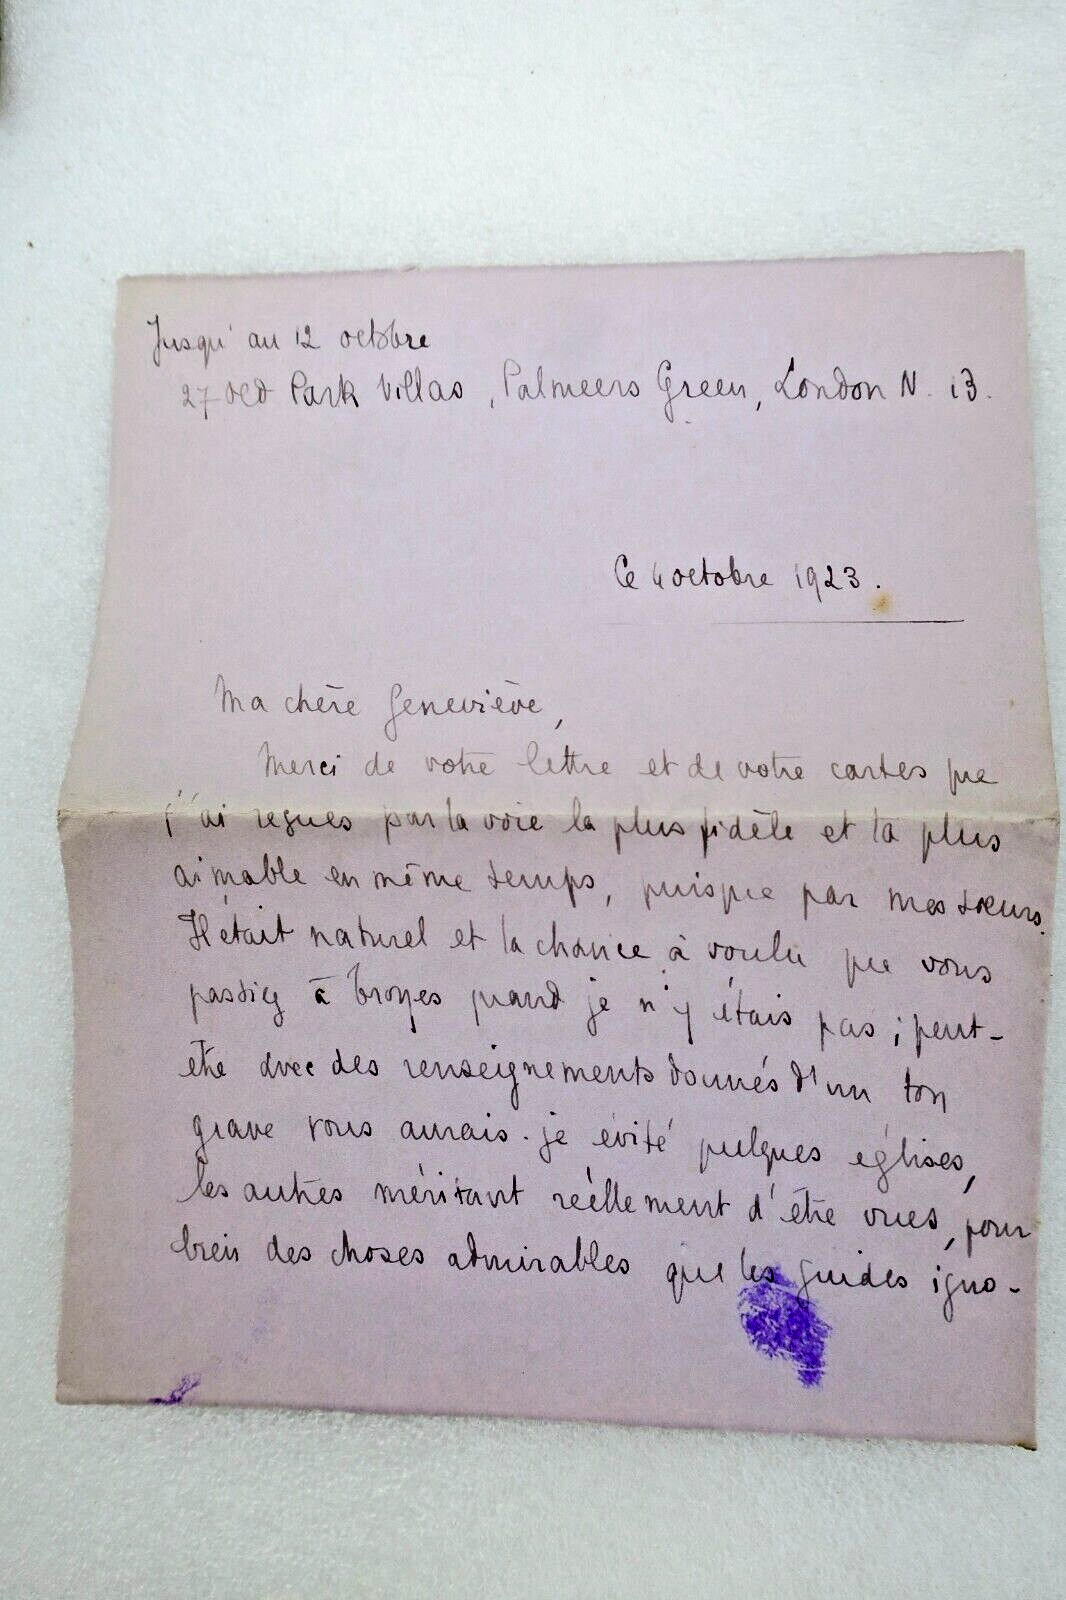 Jusqu'au 12 octobre
27 Old Park Villas, Palmeers Green, London N. 13.
Ce 4 octobre 1923.
Ma chère Geneviève,
Merci de votre lettre et de votre cartes que
j'ai reçues par la voie la plus fidèle et la plus
aimable en même temps, puisque par mes sœurs.
Il était naturel et la chance à voulu que vous
passiez à Troyes quand je n'y étais pas ; peut-
être avec des renseignements donnés d'un ton
grave vous aurais-je évité quelques églises,
les autres méritant réellement d'être vues, pour
bien des choses admirables que les guides igno-